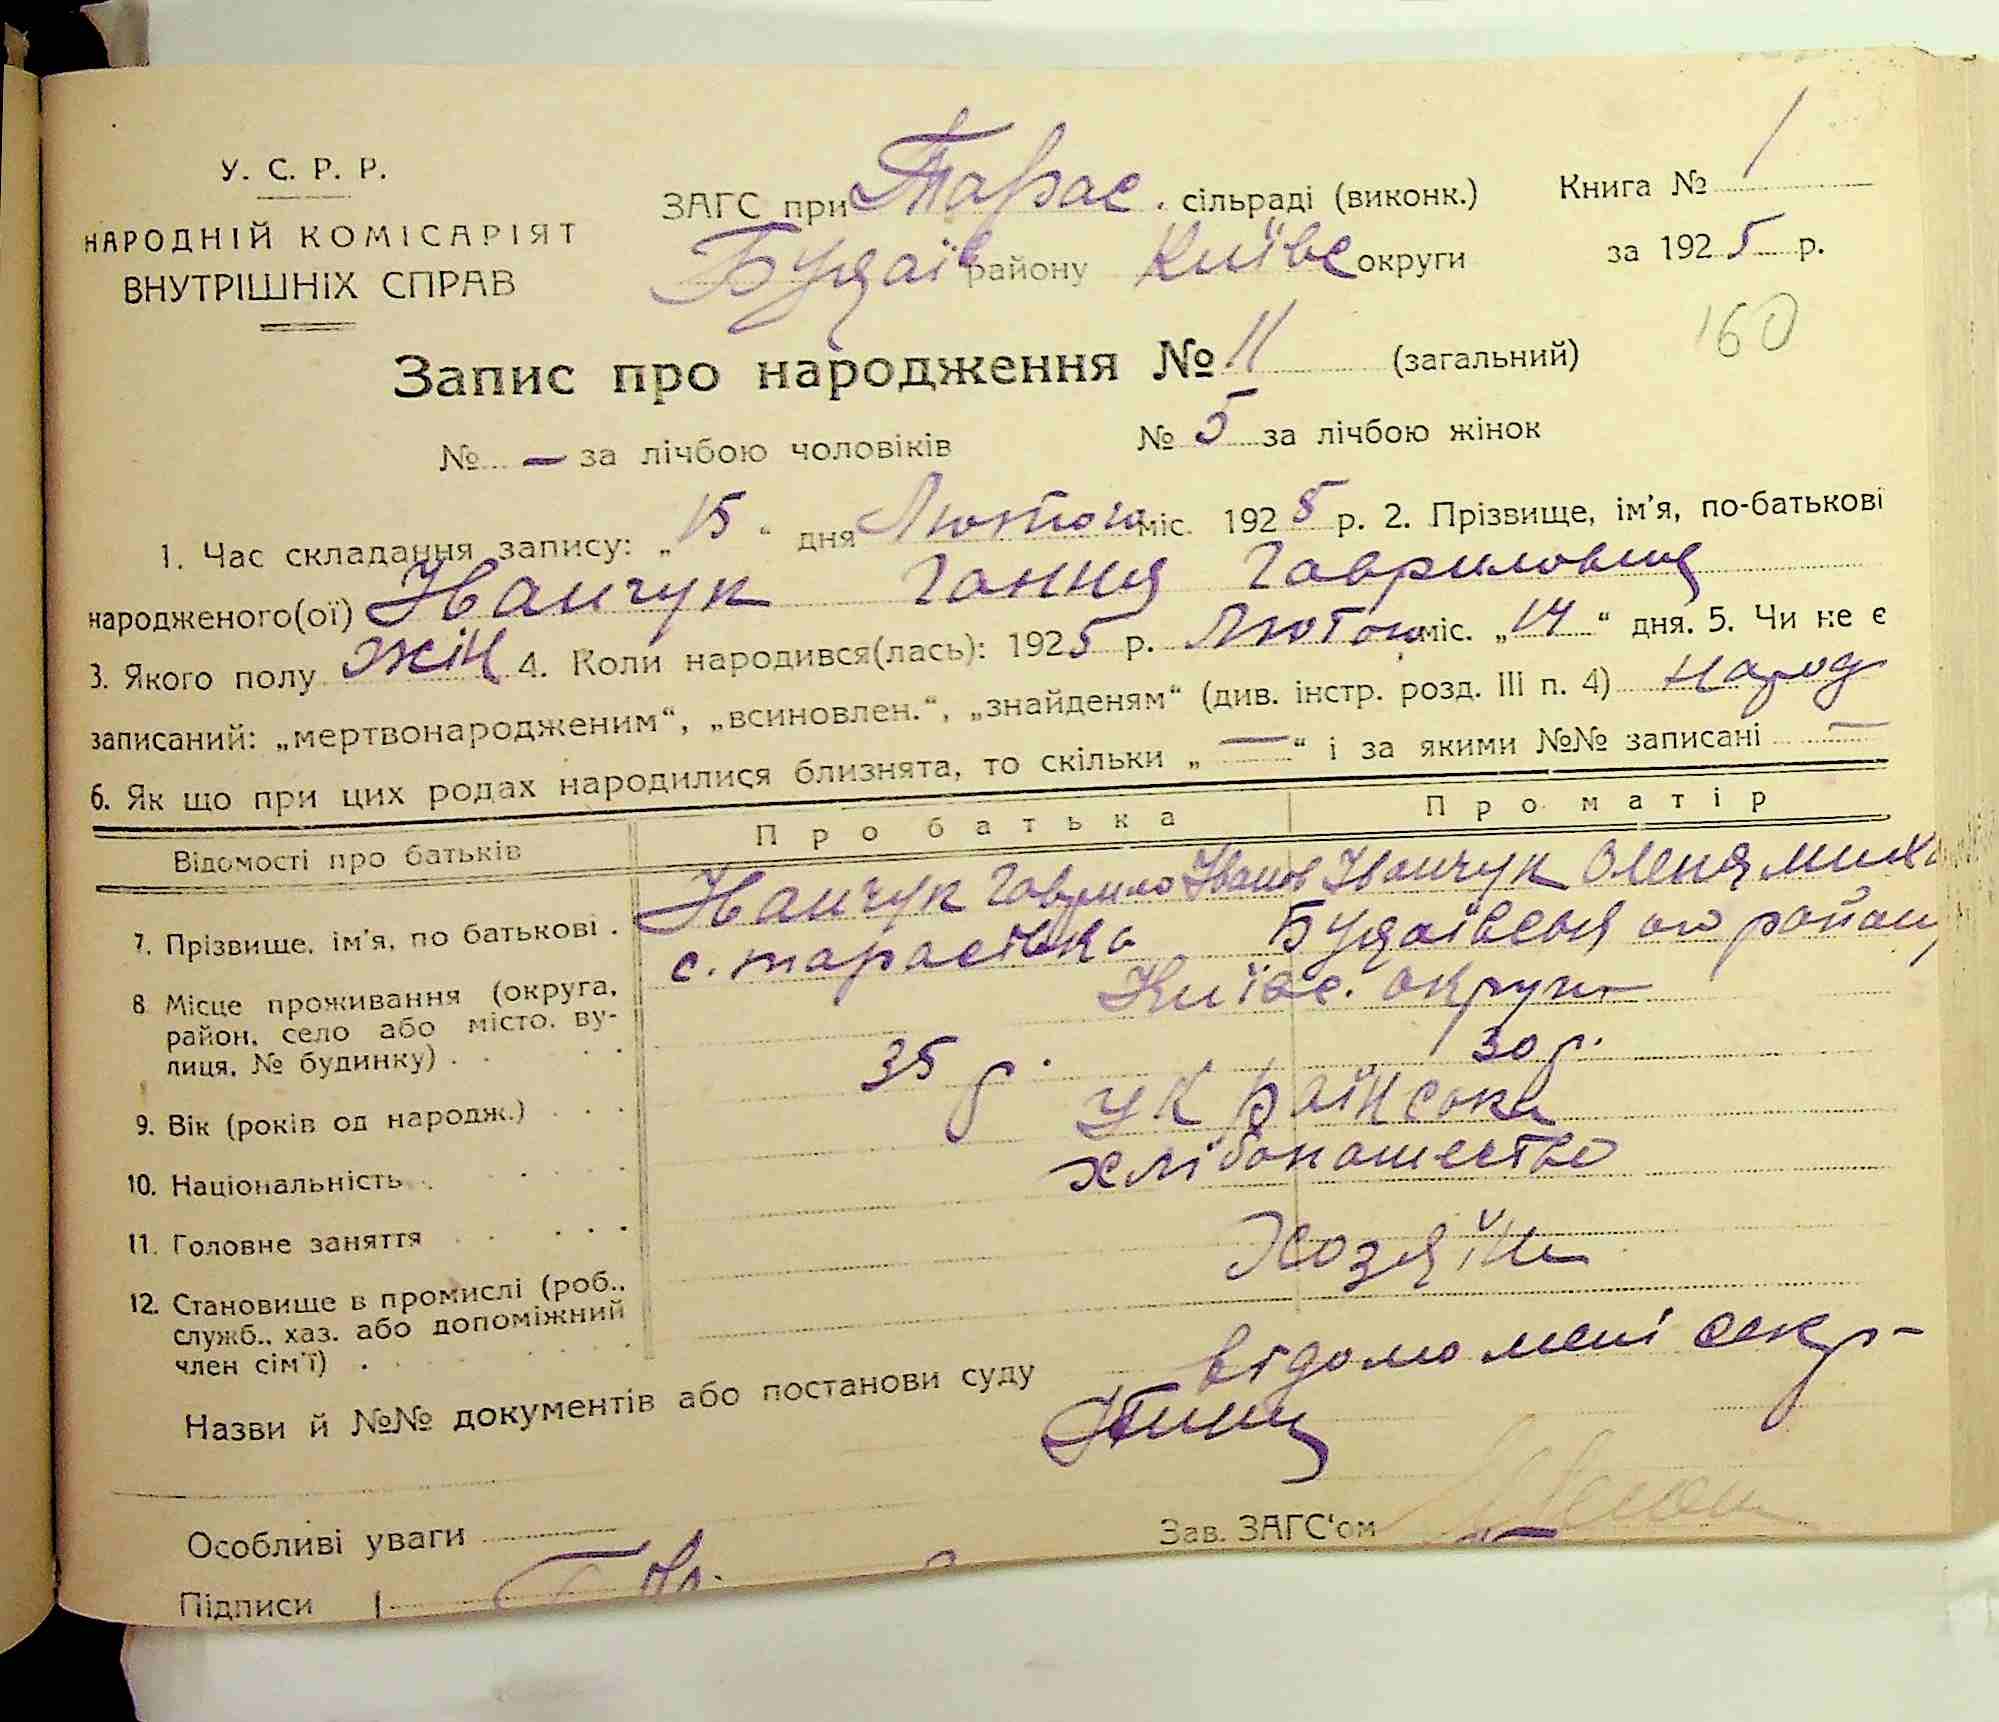 У. С. Р. Р.
НАРОДНІЙ КОМІСАРІЯТ
ВНУТРІШНІХ СПРАВ
ЗАГС при Тарас. сільраді (виконк.)
Будаїв району Київс округи
Книга № 1
за 1925 р.
160
Запис про народження № 11 (загальний)
№ — за лічбою чоловіків № 5 за лічбою жінок
1. Час складання запису: „15“ дня Лютого міс. 1925 р. 2. Прізвище, ім'я, по-батькові
народженого(ої) Іванчук Ганна Гавриловна
3. Якого полу жін 4. Коли народився(лась): 1925 р. Лютого міс. „14“ дня. 5. Чи не є
записаний: „мертвонародженим“, „всиновлен.“, „знайденям“ (див. інстр. розд. III п. 4) народ
6. Як що при цих родах народилися близнята, то скільки „—“ і за якими №№ записані —
Відомості про батьків Про батька Про матір
7. Прізвище, ім'я, по батькові . Іванчук Гаврило Іванов Іванчук Олена Миха
8 Місце проживання (округа, с. Тарасівка Будаівського району
район, село або місто, ву- Київс. округи
лиця, № будинку) . .
9. Вік (років од народж.) . . . 35 р. 30 р.
10. Національність . . Українська
11. Головне заняття . . . . хлібопашество
12. Становище в промислі (роб., Хозяїн
служб., хаз. або допоміжний
член сім'ї) .
Назви й №№ документів або постанови суду відомо мені секр-
Особливі уваги
Зав. ЗАГС'ом
Підписи